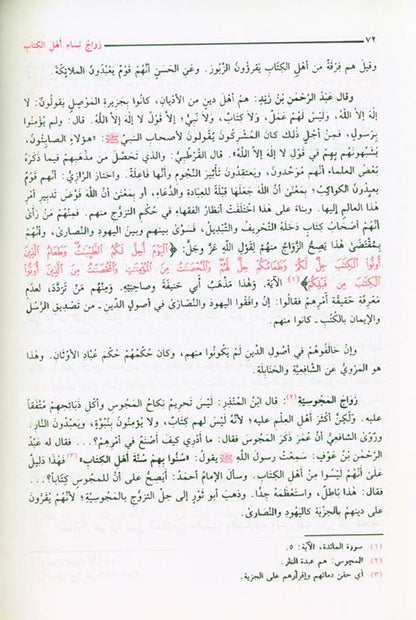 ٧٢ زواج نساء أهل الكتاب
وقيل هم فِرْقَةٌ من أهل الكتاب يقرؤون الزَّبورَ. وعن الحَسَن أنَّهُم قَوْمٌ يَعْبُدُونَ الملائكةَ.
وقال عبدُ الرَّحْمٰن بْنُ زَيدٍ: هم أهلُ دينٍ من الأَديان، كانُوا بجَزيرة المَوْصِلِ يَقولُونَ: لا
إلٰهَ إلاَّ اللَّهُ، وَلَيْسَ لَهُمْ عَمَلٌ، ولاَ كِتابٌ، ولاَ نَبِيٌّ؛ إلاَّ قَوْلُ لا إلٰهَ إلاَّ اللَّهُ. قال: ولم يُؤمِنُوا
بِرسولٍ، فمِنْ أجْلِ ذٰلكَ كانَ المشْرِكُونَ يَقُولونَ لأَصْحابِ النبيِّ ﷺ: «هؤلاءِ الصابِئُونَ،
يُشَبِّهُونَهُم بِهِمْ في قَوْلِ لا إلٰهَ إلاَّ اللَّهُ». قال القُرْطبيُّ: والذي تَحَصَّلَ من مَذْهَبِهِم فيما ذَكَرَهُ
بعضُ العلماء أنهم مُوَحِّدُون، ويَعتقِدُونَ تأثيرَ النُّجومِ وأنَّها فاعلَةٌ. واختارَ الرازِيُّ: أنَّهُم قَومٌ
يعبدُونَ الكواكِبَ؛ بمَعْنى أنَّ اللَّهَ جَعَلَها قِبْلَةً للعِبادَةِ والدُّعاءِ، أو بمَعْنى أنَّ اللَّهَ فَوَّضَ تَدبيرَ أمْرِ
هذا العالمِ إليها. وبناءً على هذا اخْتَلَفَتْ أنظارُ الفقهاءِ في حُكْمِ التزوُّجِ منهم. فمِنْهُمْ مَنْ رَأَىٰ
أنهُم أصحابُ كتابٍ دَخَلَهُ التَّحْريفُ والتَّبْديلُ، فَسَوَّىٰ بينهم وبينَ اليَهودِ والنصارىٰ، وأنَّهُم
بمُقْتَضَىٰ هَذا يَصِحُّ الزَّواجُ منْهُم لِقَوْلِ اللَّهِ عزَّ وجلَّ: ﴿ٱلْيَوْمَ أُحِلَّ لَكُمُ ٱلطَّيِّبَٰتُ وَطَعَامُ ٱلَّذِينَ
أُوتُوا۟ ٱلْكِتَٰبَ حِلٌّ لَّكُمْ وَطَعَامُكُمْ حِلٌّ لَّهُمْ وَٱلْمُحْصَنَٰتُ مِنَ ٱلْمُؤْمِنَٰتِ وَٱلْمُحْصَنَٰتُ مِنَ ٱلَّذِينَ أُوتُوا۟
ٱلْكِتَٰبَ مِن قَبْلِكُمْ﴾(١) الآيَة. وهذا مَذْهَبُ أبي حَنيفَةَ وصاحِبَيْهِ. ومِنْهُم مَنْ تَرَدَّدَ، لعدَمِ
مَعْرِفَةِ حَقيقَةِ أمْرِهِمْ فقالُوا: إنْ وافَقُوا اليهودَ والنَّصارَىٰ في أُصولِ الدِّينِ - من تَصْديقِ الرُّسُلِ
والإيمانِ بالكُتُبِ - كانُوا منهم.
وإن خالَفُوهُمْ في أُصولِ الدِّينِ لَمْ يَكُونُوا منهم، وكان حُكْمُهُمْ حُكْمَ عُبَّادِ الأَوْثَانِ. وهذا
هو المَرْويُّ عن الشَّافِعِيَّةِ والحَنابِلَةِ.
زَواجُ المَجُوسِيَّةِ(٢): قال ابْنُ المُنْذِرِ: لَيْسَ تَحريمُ نِكاحِ المَجوسِ وأكْلِ ذبائِحِهِم مُتَّفَقاً
عليه. ولٰكِنَّ أكثَرَ أهلِ العِلْمِ عليه؛ لأنَّهُ لَيْسَ لهم كِتابٌ، ولا يُؤمِنُونَ بنُبُوَّةٍ، ويَعبُدُونَ النَّارَ.
ورَوَىٰ الشافعيُّ أنَّ عُمَرَ ذَكَرَ المَجوسَ فقال: ما أدْرِي كَيفَ أصْنَعُ في أمْرِهِمْ؟... فقال له عبدُ
الرَّحْمٰن بْنُ عَوْفٍ: سَمِعْتُ رسولَ اللَّهِ ﷺ يقولُ: «سُنُّوا بِهِمْ سُنَّةَ أهْلِ الكتاب»(٣) فهذا دَليلٌ
علىٰ أنَّهُم لَيْسُوا مِنْ أهْلِ الكتابِ. وسألَ الإمامَ أحمدَ: أيَصِحُّ علىٰ أنَّ للمَجُوسِ كِتاباً؟...
فقال: هٰذا باطلٌ، واستَعْظَمَهُ جِدًّا. وذهبَ أبو ثَوْرٍ إلى حِلِّ التزوُّجِ بالمَجُوسِيَّةِ؛ لأنَّهُم يُقَرُّونَ
على دِينِهم بالجِزْيَةِ كاليَهُودِ والنَّصارَىٰ.
(١) سورة المائدة، الآية: ٥.
(٢) المجوس: هم عبدة النار.
(٣) أي حقن دمائهم وإقرارهم على الجزية.